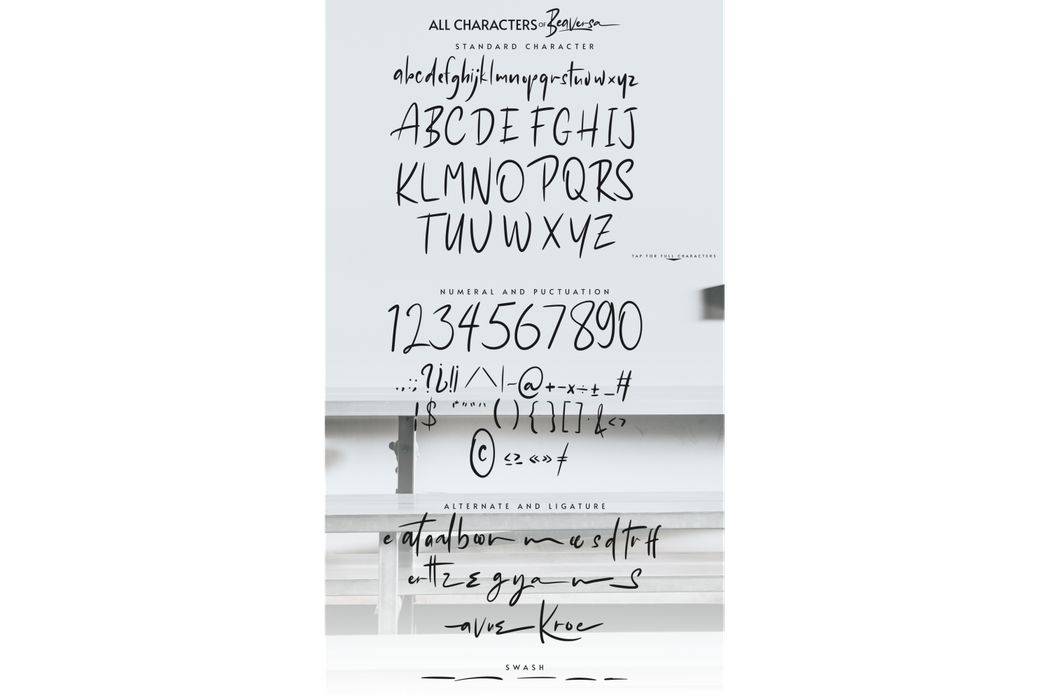 ALL CHARACTERS OF Beaversa
STANDARD CHARACTER
abcdefghijklmnopqrstuvwxyz
ABCDEFGHIJ
KLMNOPQRS
TUVWXYZ
TAP FOR FULL CHARACTERS
NUMERAL AND PUCTUATION
1234567890
.,:;?¿!¡/\|-@+-×÷±_#
¦$ '"“” (){}[]·&<>
© ≤≥ «» ≠
ALTERNATE AND LIGATURE
SWASH